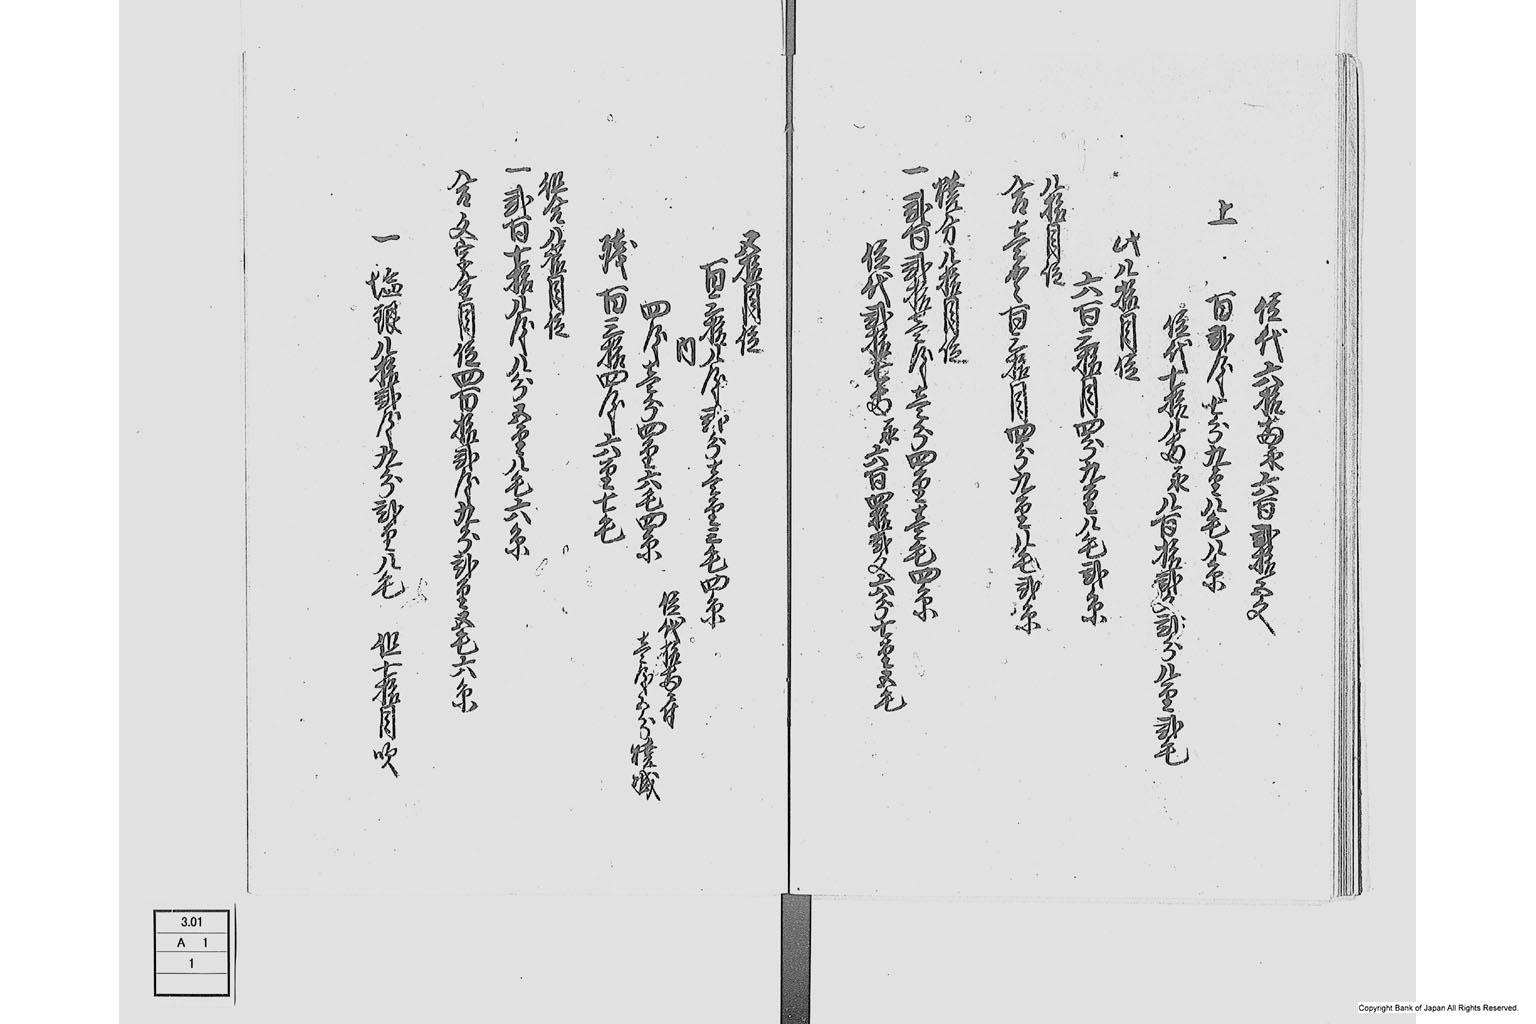 位代六拾両永六百弐拾五文
上
百弐匁七分九厘八毛八糸
位代七拾八両永八百拾弐文弐分八厘弐毛
此八拾目位
六百三拾目四分九厘八毛弐糸
八拾目位
合壱貫百三拾目四分九厘八毛弐糸
焼分八拾目位
一弐百弐拾壱匁壱分四厘壱毛四糸
位代弐拾七両永六百四拾弐文六分七厘五毛
五拾目位
百三拾八匁弐分壱厘三毛四糸
内
四匁壱分四厘六毛四糸
位代拾両ニ付
壱匁五分焼減
残百三拾四匁六厘七毛
位合八拾目位
一弐百七拾八匁八分五厘八毛六糸
合文字金目位四百拾弐匁九分弐厘五毛六糸
一塩銀八拾弐匁九分弐厘八毛 但七拾目吹
3.01
A 1
1
Copyright Bank of Japan All Rights Reserved.